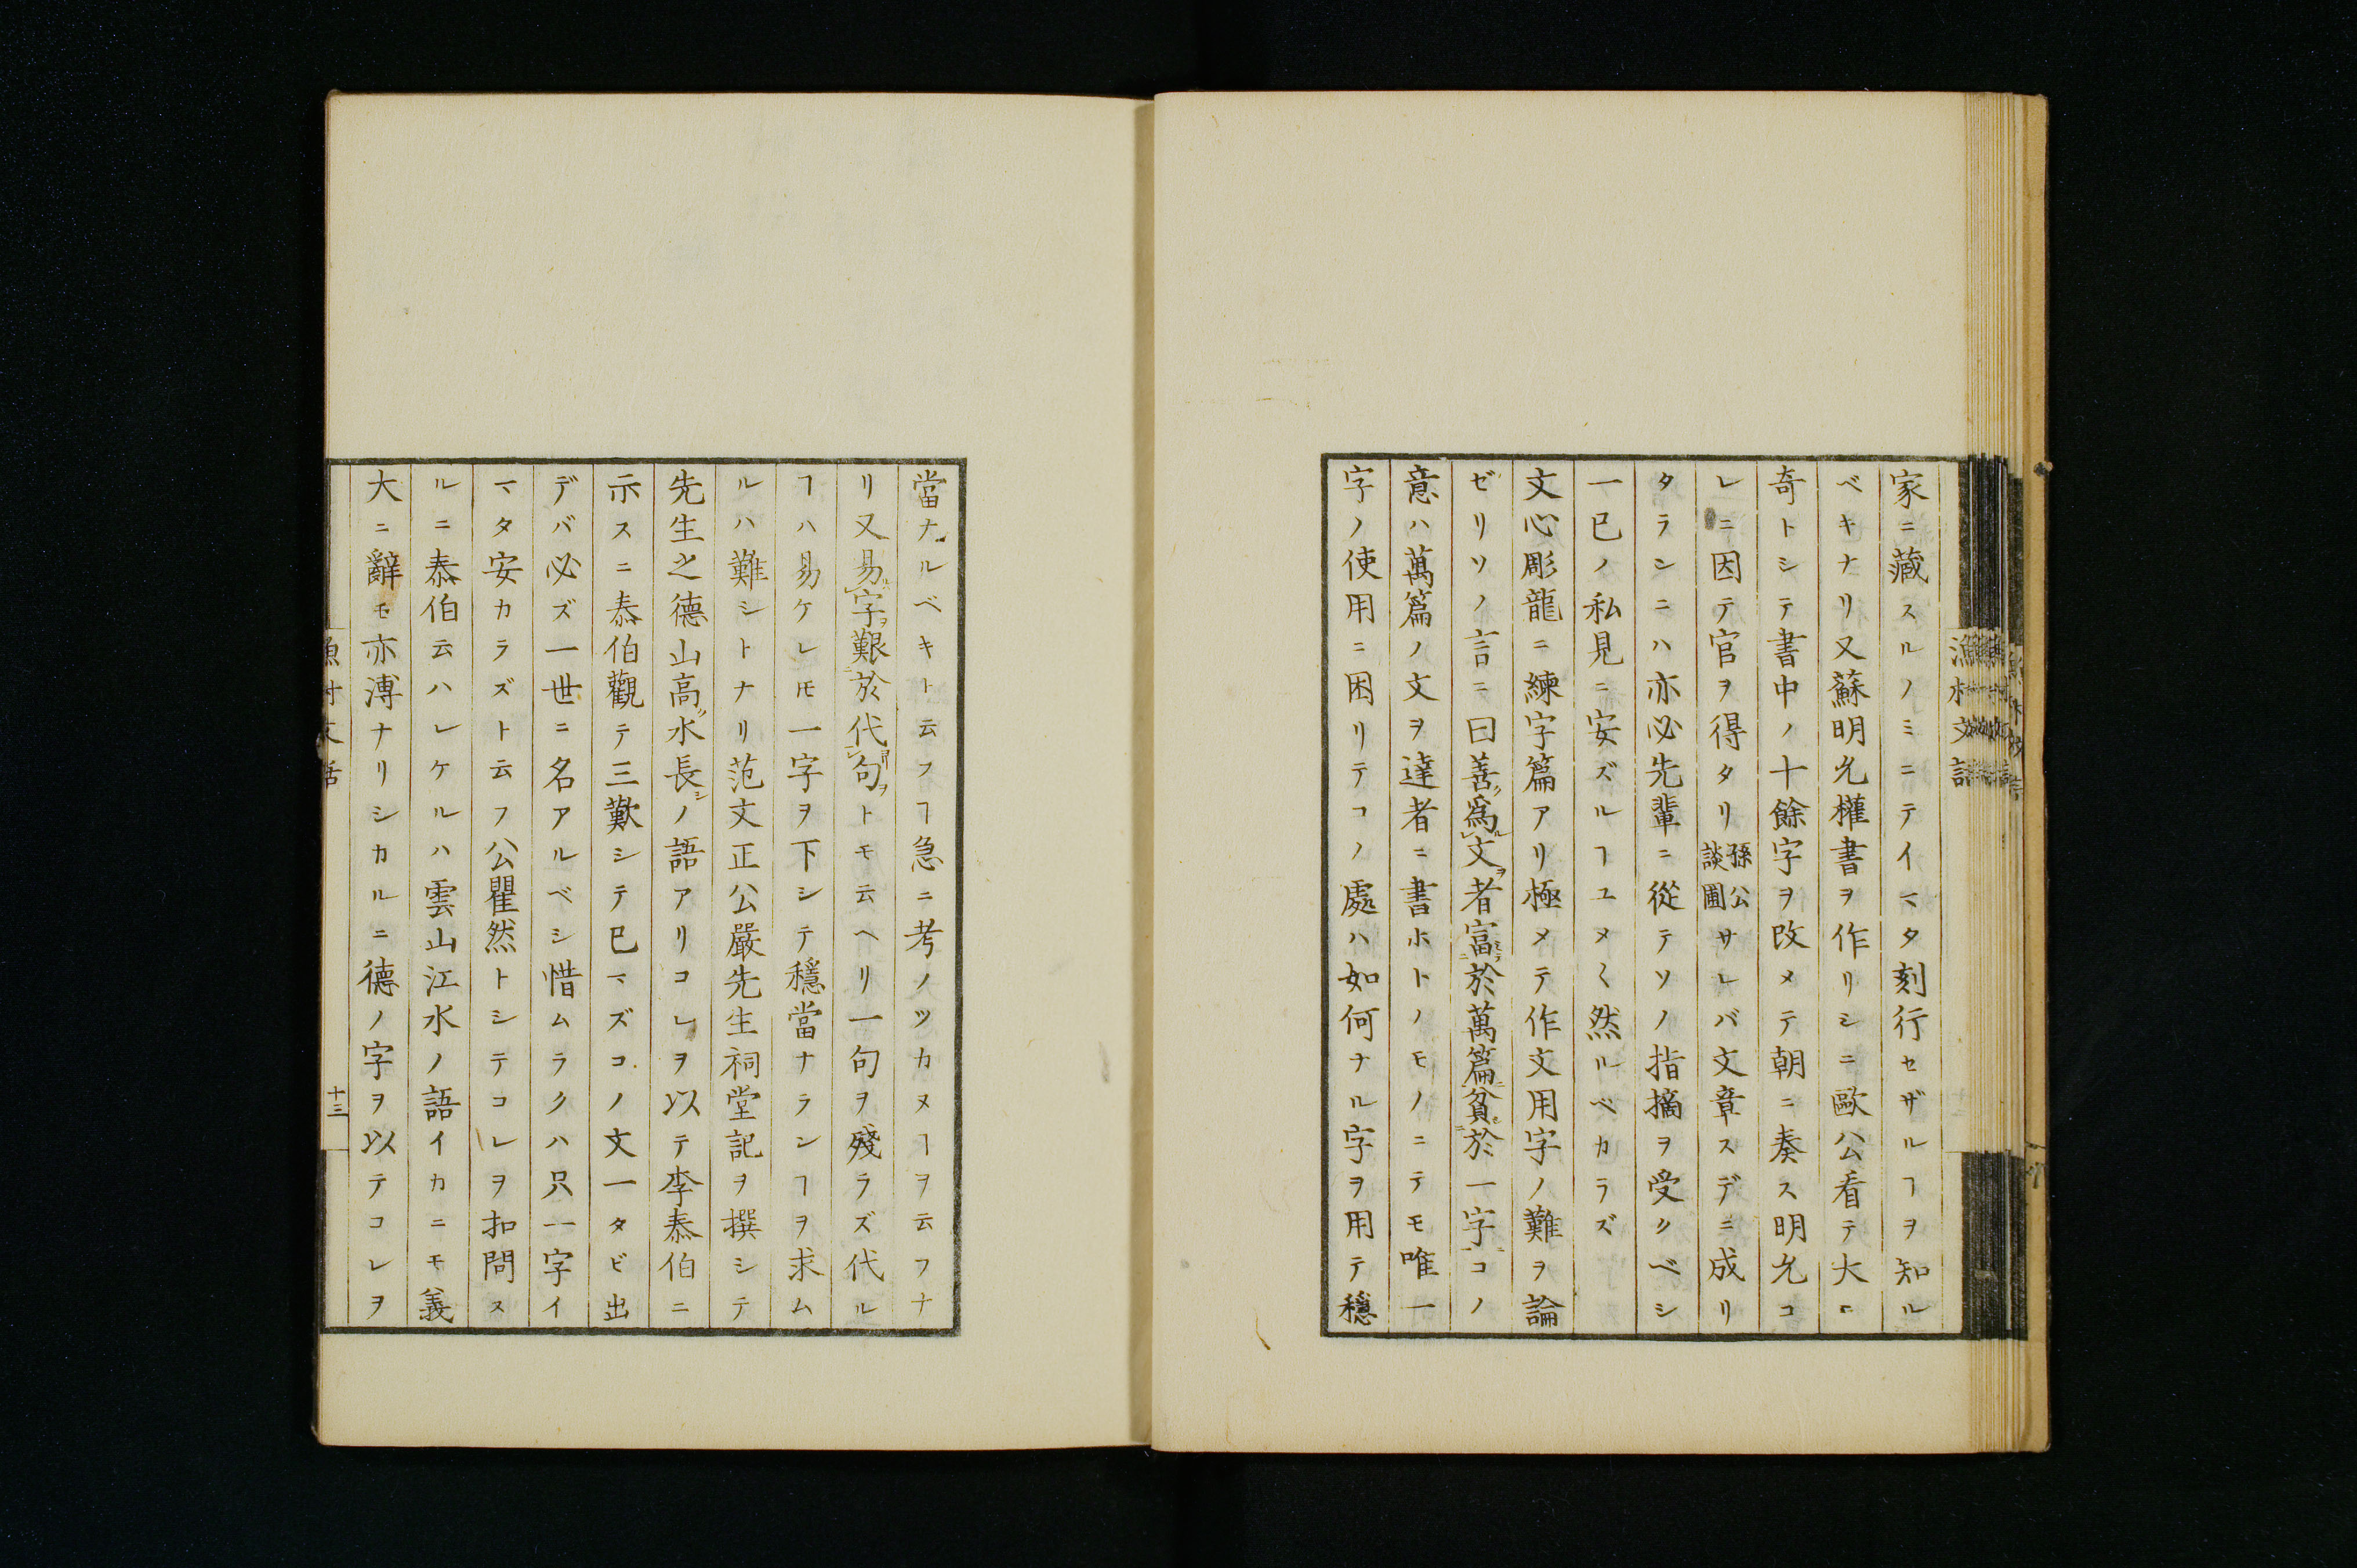 家ニ藏スルノミニテイマタ刻行セザルヿヲ知ル
ベキナリ又蘇明允權書ヲ作リシニ歐公看テ大ニ
奇トシテ書中ノ十餘字ヲ改メテ朝ニ奏ス明允コ
レニ因テ官ヲ得タリ孫公談圃サレバ文章スデニ成リ
タラシニハ亦必先輩ニ從テソノ指摘ヲ受クベシ
一已ノ私見ニ安ズルヿユメ〱然ルベカラズ
文心彫龍ニ練字篇アリ極メテ作文用字ノ難ヲ論
ゼリソノ言ニ曰善爲文者富於萬篇貧於一字コノ
意ハ萬篇ノ文ヲ達者ニ書ホトノモノニテモ唯一
字ノ使用ニ困リテコノ處ハ如何ナル字ヲ用テ穩
漁村文話
當ナルベキト云フヿ急ニ考ノツカヌヿヲ云フナ
リ又易字艱於代句トモ云ヘリ一句ヲ殘ラズ代ル
ヿハ易ケレ𪜈一字ヲ下シテ穩當ナランヿヲ求ム
ルハ難シトナリ范文正公嚴先生祠堂記ヲ撰シテ
先生之德山高水長ノ語アリコレヲ以テ李泰伯ニ
示スニ泰伯觀テ三歎シテ已マズコノ文一タビ出
デバ必ズ一世ニ名アルベシ惜ムラクハ只一字イ
マタ安カラズト云フ公瞿然トシテコレヲ扣問ス
ルニ泰伯云ハレケルハ雲山江水ノ語イカニモ義
大ニ辭モ亦溥ナリシカルニ德ノ字ヲ以テコレヲ
漁村文話
十三